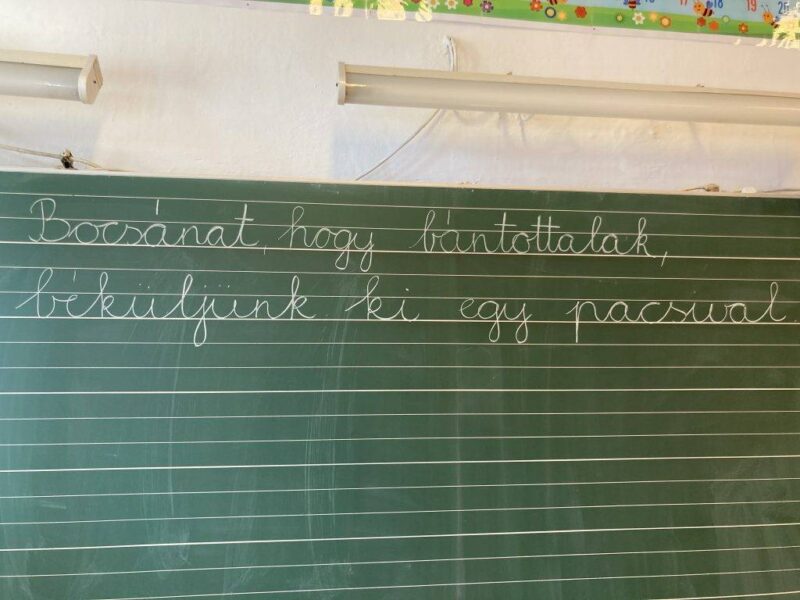 19
Bocsánat, hogy bántottalak,
béküljünk ki egy pacsival.